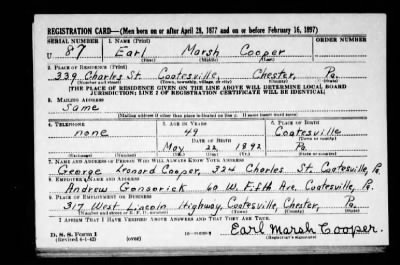 REGISTRATION CARD—(Men born on or after April 28, 1877 and on or before February 16, 1897)
SERIAL NUMBER 1. NAME (Print) ORDER NUMBER
U 87 Earl Marsh Cooper
(First) (Middle) (Last)
2. PLACE OF RESIDENCE (Print)
339 Charles St. Coatesville, Chester, Pa.
(Number and street) (Town, township, village, or city) (County) (State)
[THE PLACE OF RESIDENCE GIVEN ON THE LINE ABOVE WILL DETERMINE LOCAL BOARD
JURISDICTION; LINE 2 OF REGISTRATION CERTIFICATE WILL BE IDENTICAL]
3. MAILING ADDRESS
Same
[Mailing address if other than place indicated on line 2. If same insert word same]
4. TELEPHONE 5. AGE IN YEARS 6. PLACE OF BIRTH
none 49 Coatesville
DATE OF BIRTH (Town or county)
May 22 1892 Pa.
(Exchange) (Number) (Mo.) (Day) (Yr.) (State or country)
7. NAME AND ADDRESS OF PERSON WHO WILL ALWAYS KNOW YOUR ADDRESS
George Leonard Cooper, 324 Charles St. Coatesville, Pa.
8. EMPLOYER'S NAME AND ADDRESS
Andrew Gonsorick 60 W. Fifth Ave. Coatesville, Pa.
9. PLACE OF EMPLOYMENT OR BUSINESS
317 West Lincoln Highway, Coatesville, Chester, Pa.
(Number and street or R. F. D. number) (Town) (County) (State)
I AFFIRM THAT I HAVE VERIFIED ABOVE ANSWERS AND THAT THEY ARE TRUE.
D. S. S. Form 1
(Revised 4-1-42) (over) Earl Marsh Cooper.
(Registrant's signature)